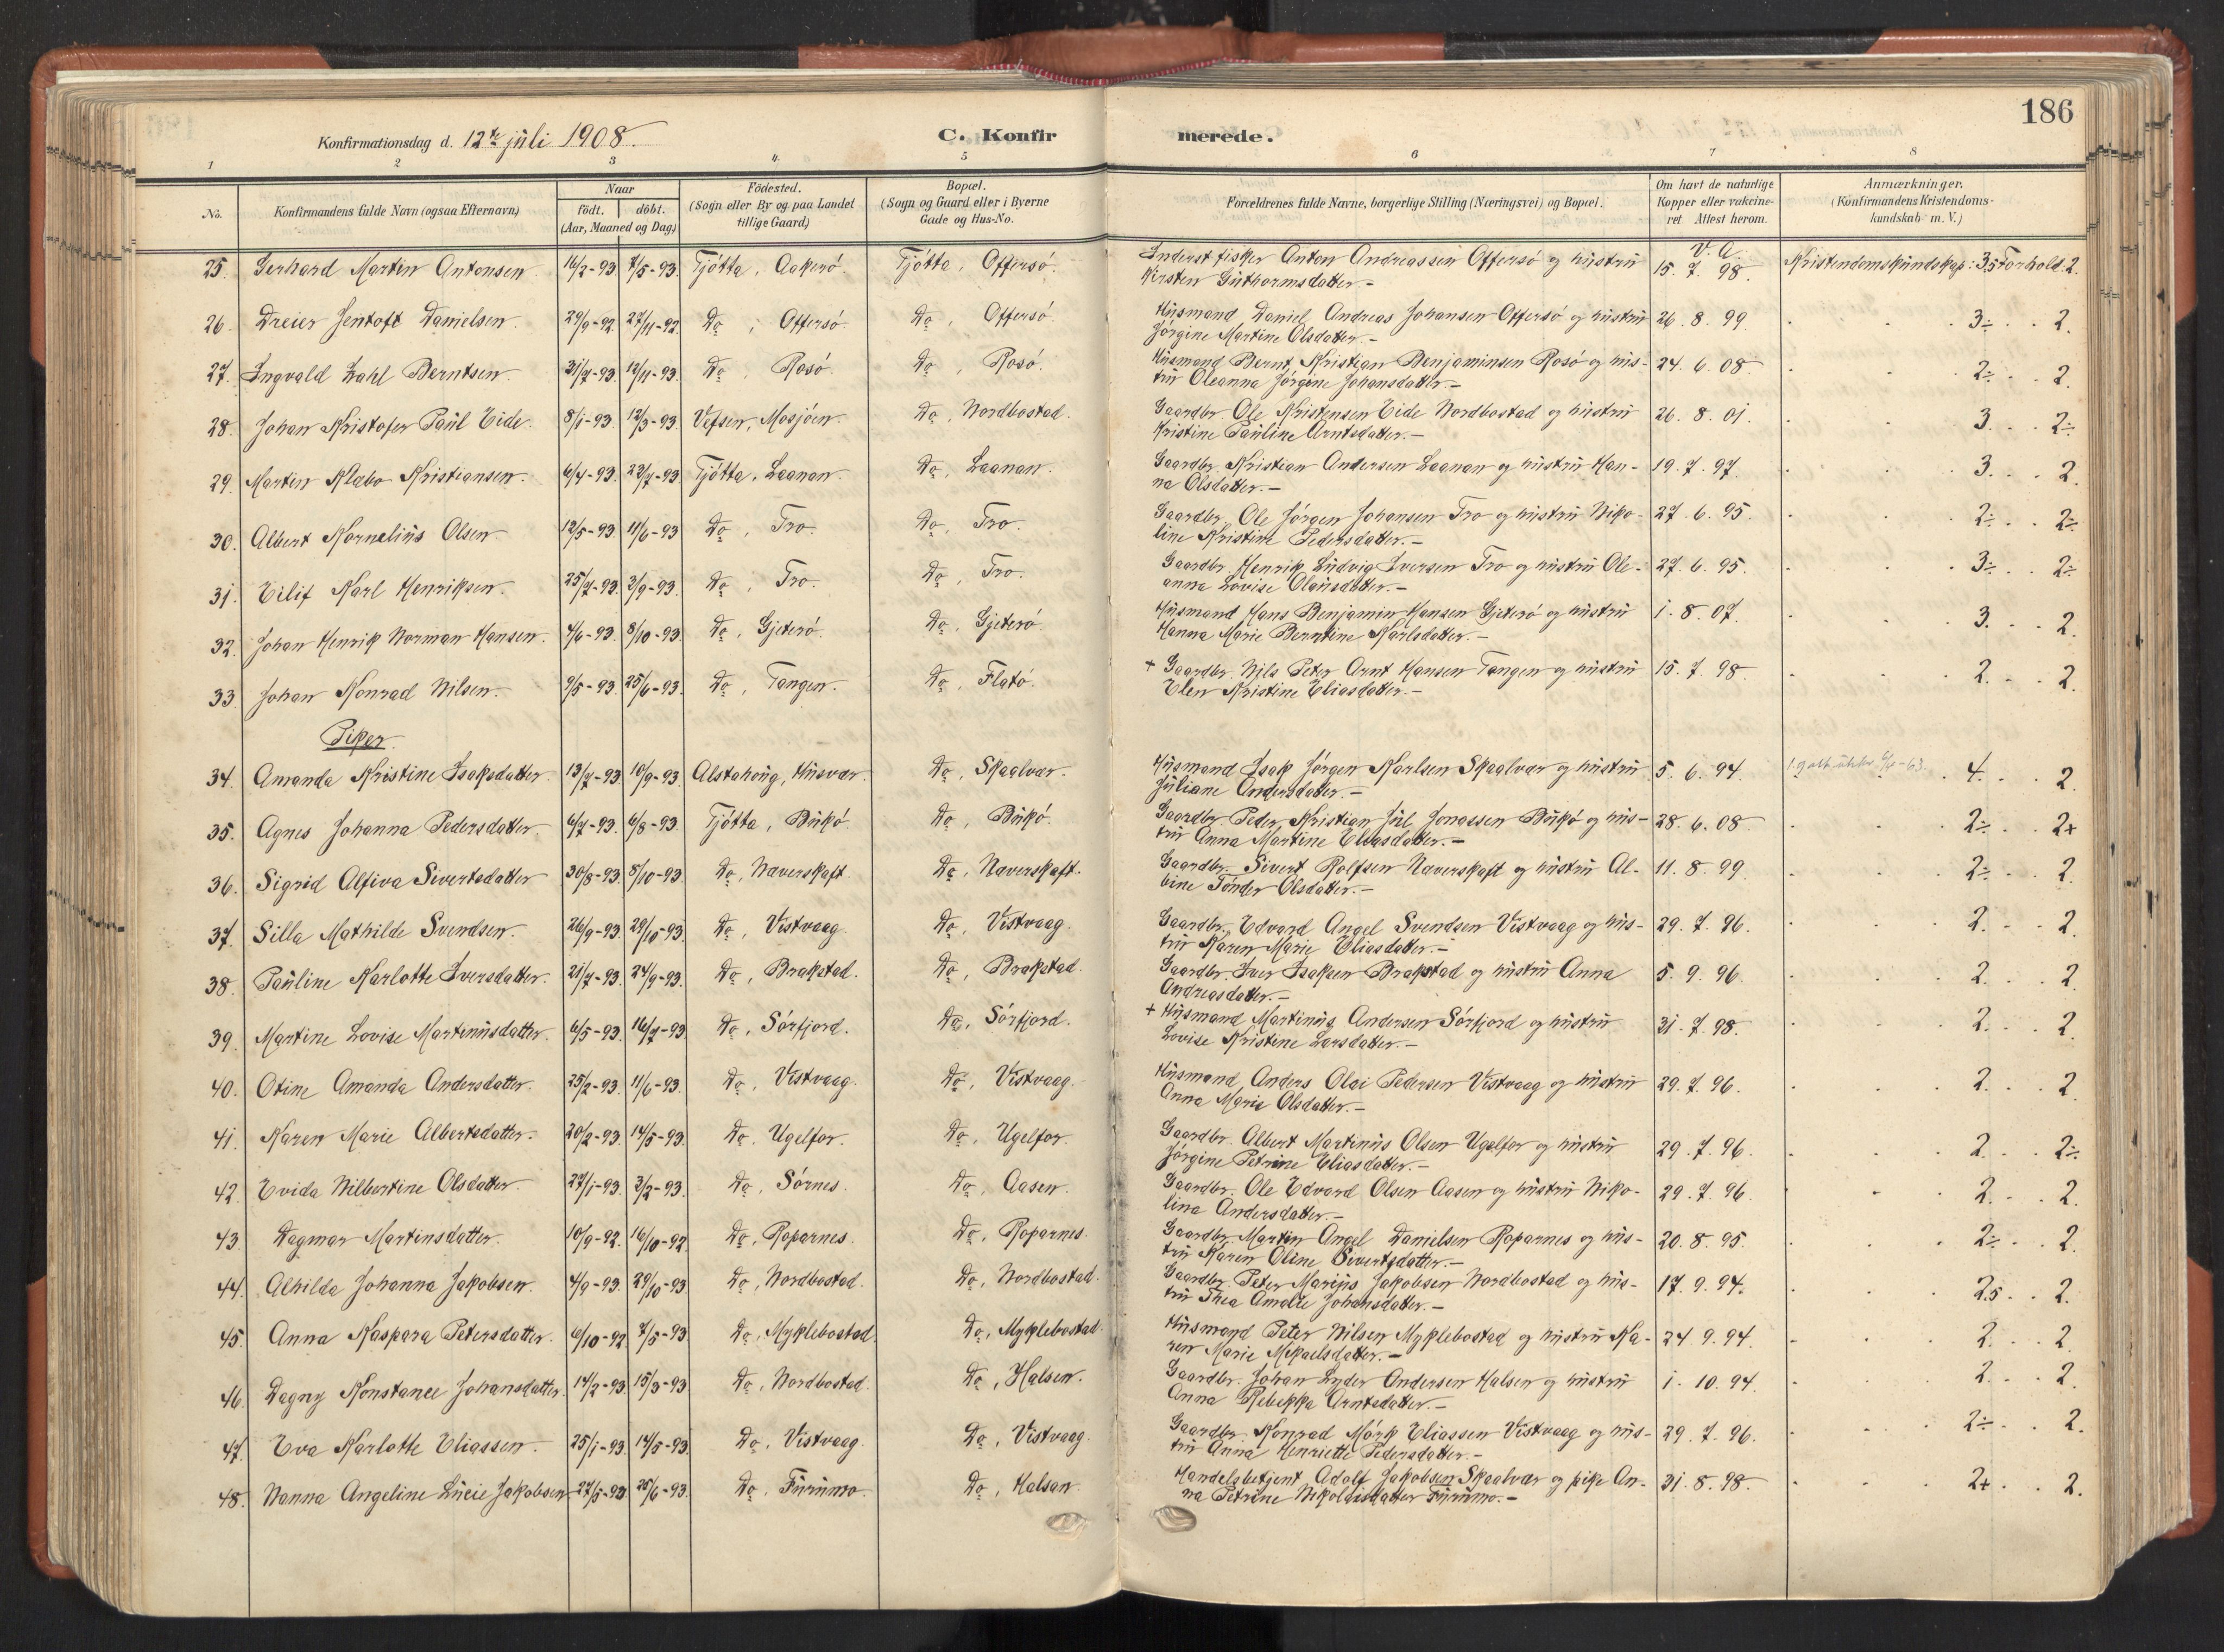 186
Konfirmationsdag d. 12te juli 1908.
C. Konfirmerede.
1 2 3 4 5 6 7 8
No. Konfirmandens fulde Navn (ogsaa Efternavn) Naar født. døbt. (Aar, Maaned og Dag) Fødested. (Sogn eller By og paa Landet tillige Gaard) Bopæl. (Sogn og Gaard eller i Byerne Gade og Hus-No. Forældrenes fulde Navne, borgerlige Stilling (Næringsvei) og Bopæl. Om havt de naturlige Kopper eller vakcineret. Attest herom. Anmærkninger. (Konfirmandens Kristendomskundskab m. V.)
25. Gerhard Martin Antonsen. 16/2-93 7/5-93. Tjötta, Aakerö. Tjötta, Offersö. Inderst fisker Anton Andreassen Offersö og hustru Kirsten Guthormsdatter.- V. A. 15. 7. 98. Kristendomskundskap: 3,5 Forhold: 2.
26. Dreier Jentoft Danielsen. 29/9-92. 27/11-92. Do, Offersö. Do, Offersö. Husmand Daniel Andreas Johansen Offersö og hustru Jörgine Martine Olsdatter.- 26. 8. 99. 3÷ 2.
27. Ingvald Zahl Berntsen. 31/7-93. 12/11-93. Do, Rosö. Do, Rosö. Husmand Bernt Kristian Benjaminsen Rosö og hustru Oleanna Jörgine Johansdatter.- 24. 6. 08 2÷ 2.
28. Johan Kristofer Paul Eide. 8/1-93. 12/3-93. Vefsen, Mosjöen. Do, Nordbostad. Gaardbr. Ole Kristensen Eide Nordbostad og hustru Kristine Pauline Arntsdatter.- 26. 8. 01 3. 2÷
29. Martin Klæbo Kristiansen. 6/4-93. 23/7-93 Tjötta, Laanan. Do, Laanan. Gaardbr. Kristian Andersen Laanan og hustru Hanna Olsdatter.- 19. 7. 97. 3. 2.
30. Albert Kornelius Olsen. 12/5-93. 11/6-93 Do, Tro. Do, Tro. Gaardbr. Ole Jörgen Johansen Tro og hustru Nikoline Kristine Pedersdatter.- 27. 6. 95. 2÷ 2÷
31. Eilif Karl Henriksen. 25/7-93. 3/9-93. Do, Tro. Do, Tro. Gaardbr. Henrik Ludvig Iversen Tro og hustru Oleanna Lovise Olausdatter.- 27. 6. 95. 3÷ 2÷
32. Johan Henrik Norman Hansen. 4/6-93. 8/10-93 Do, Gjeterö. Do, Gjeterö. Husmand Hans Benjamin Hansen Gjeterö og hustru Hanna Marie Berntine Karlsdatter.- 1. 8. 07. 3. 2.
33. Johan Konrad Nilsen. 9/5-93. 25/6-93. Do, Tangen. Do, Flatö. + Gaardbr. Nils Peter Arnt Hansen Tangen og hustru Elen Kristine Eliasdatter.- 15. 7. 98. 2. 2.
Piker.
34. Amanda Kristine Isaksdatter. 13/7-93 10/9-93 Alstahoug, Husvær. Do, Skaalvær. Husmand Isak Jörgen Karlsen Skaalvær og hustru Juliane Andersdatter.- 5. 6. 94. 4. 2.
35. Agnes Johanna Pedersdatter. 6/7-93. 6/8-93. Tjötta, Bukö. Do, Bukö. Gaardbr. Peder Kristian Jul Jonassen Bukö og hustru Anna Martine Eliasdatter.- 28. 6. 08 2÷ 2+
36. Sigrid Alfiva Sivertsdatter 30/8-93. 8/10-93. Do, Naverskaft. Do, Naverskaft. Gaardbr. Sivert Rolfsen Naverskaft og hustru Albine Tönder Olsdatter.- 11. 8. 99. 2÷ 2.
37. Silla Mathilde Svendsen. 26/9-93. 29/10-93 Do, Vistvaag. Do, Vistvaag. Gaardbr. Edvard Angel Svendsen Vistvaag og hustru Karen Marie Eliasdatter.- 29. 7. 96. 2. 2.
38. Pauline Karlotte Iversdatter. 21/7-93. 24/9-93. Do, Brakstad. Do, Brakstad. Gaardbr. Iver Isaksen Brakstad og hustru Anna Andreasdatter.- 5. 9. 96. 2. 2.
39. Martine Lovise Martinusdatter. 6/5-93. 16/7-93 Do, Sörfjord. Do, Sörfjord. + Husmand Martinus Andersen Sörfjord og hustru Lovise Kristine Larsdatter.- 31. 7. 98. 2. 2.
40. Otine Amanda Andersdatter. 25/2-93. 11/6-93. Do, Vistvaag. Do, Vistvaag. Husmand Anders Olai Pedersen Vistvaag og hustru Anna Marie Olsdatter.- 29. 7. 96. 2. 2.
41. Karen Marie Albertsdatter. 20/2-93. 14/5-93. Do, Ugelfor. Do, Ugelfor. Gaardbr. Albert Martinus Olsen Ugelfor og hustru Jörgine Petrine Eliasdatter.- 29. 7. 96. 2. 2÷
42. Evida Nilbertine Olsdatter. 27/1-93. 3/2-93. Do, Sörnes. Do, Aasen. Gaardbr. Ole Edvard Olsen Aasen og hustru Nikolina Andersdatter.- 29. 7. 96. 2. 2.
43. Dagmar Martinsdatter. 10/9-92. 16/10-92 Do, Roparnes. Do, Roparnes. Gaardbr. Martin Angel Danielsen Roparnes og hustru Karen Oline Sivertsdatter.- 20. 8. 95. 2÷ 2.
44. Alhilda Johanna Jakobsen. 4/9-93. 29/10-93 Do, Nordbostad. Do, Nordbostad. Gaardbr. Peter Marius Jakobsen Nordbostad og hustru Thea Amalie Johansdatter.- 17. 9. 94. 2,5 2.
45. Anna Kaspara Petersdatter. 6/10-92 7/5-93 Do, Myklebostad. Do, Myklebostad. Husmand Peter Nilsen Myklebostad og hustru Karen Marie Mikaelsdatter.- 24. 9. 94. 2. 2.
46. Dagny Konstance Johansdatter. 14/2-93. 15/3-93 Do, Nordbostad. Do, Halsen. Gaardbr. Johan Lyder Andersen Halsen og hustru Anna Rebekka Arntsdatter.- 1. 10. 94. 2. 2.
47. Eva Karlotte Eliassen. 25/1-93. 14/5-93 Do, Vistvaag. Do, Vistvaag. Gaardbr. Konrad Mörk Eliassen Vistvaag og hustru Anna Henriette Pedersdatter.- 29. 7. 96. 2÷ 2.
48. Nanna Angeline Lucie Jakobsen 27/5-93 25/6-93. Do, Furumo. Do, Halsan. Handelsbetjent Adolf Jakobsen Skaalvær og pike Anna Petrine Nikolaisdatter Furumo.- 31. 8. 98. 2+ 2.